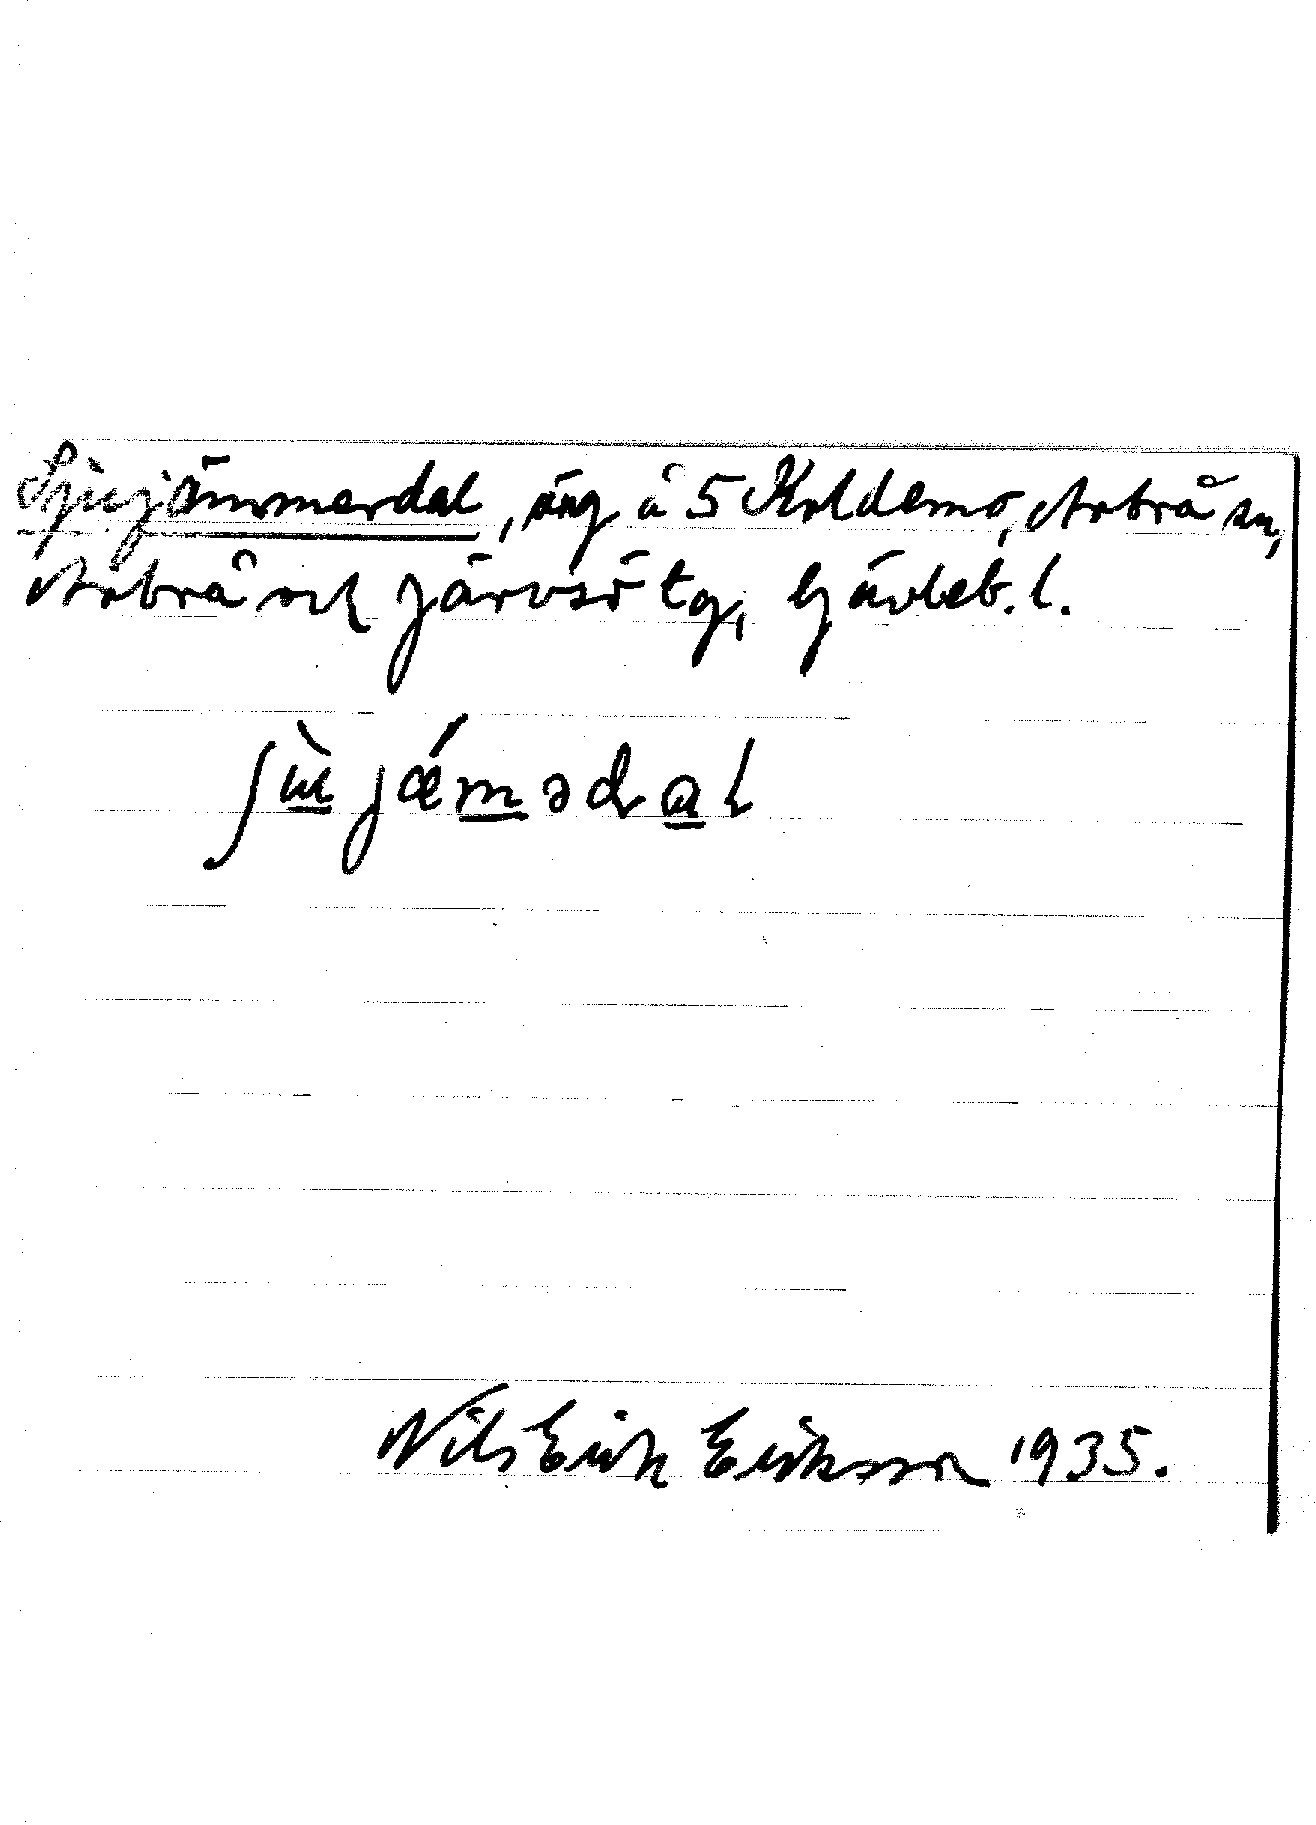 Sjujämmerdal, äng å 5 Koldemo, Arbrå sn,
Arbrå och Järvsö tg, Gävleb. l.
ʃɯ̀jǽmədal
Nils Erik Eriksson 1935.